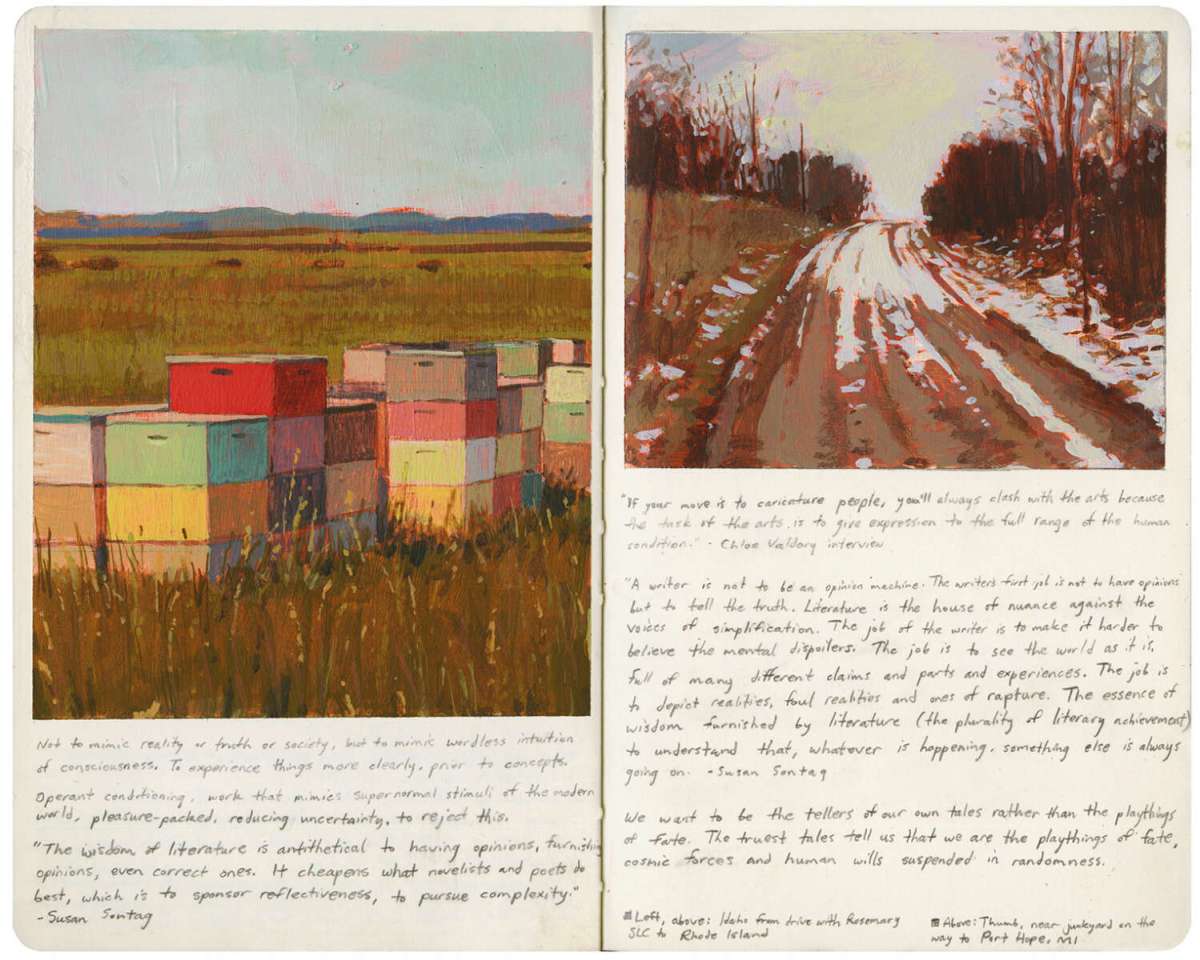 Not to mimic reality or truth or society, but to mimic wordless intuition
of consciousness. To experience things more clearly, prior to concepts.
Operant conditioning, work that mimics supernormal stimuli of the modern
world, pleasure-packed, reducing uncertainty, to reject this.
"The wisdom of literature is antithetical to having opinions, furnishing
opinions, even correct ones. It cheapens what novelists and poets do
best, which is to sponsor reflectiveness, to pursue complexity."
-Susan Sontag
"If your move is to caricature people, you'll always clash with the arts because
the task of the arts is to give expression to the full range of the human
condition." - Chloe Valdary interview
"A writer is not to be an opinion machine. The writers first job is not to have opinions
but to tell the truth. Literature is the house of nuance against the
voices of simplification. The job of the writer is to make it harder to
believe the mental dispoilers. The job is to see the world as it is,
full of many different claims and parts and experiences. The job is
to depict realities, foul realities and ones of rapture. The essence of
wisdom furnished by literature (the plurality of literary achievement)
to understand that, whatever is happening, something else is always
going on. -Susan Sontag
We want to be the tellers of our own tales rather than the playthings
of fate. The truest tales tell us that we are the playthings of fate,
cosmic forces and human wills suspended in randomness.
Left, above: Idaho from drive with Rosemary
SLC to Rhode Island
Above: Thumb, near junkyard on the
way to Port Hope, MI